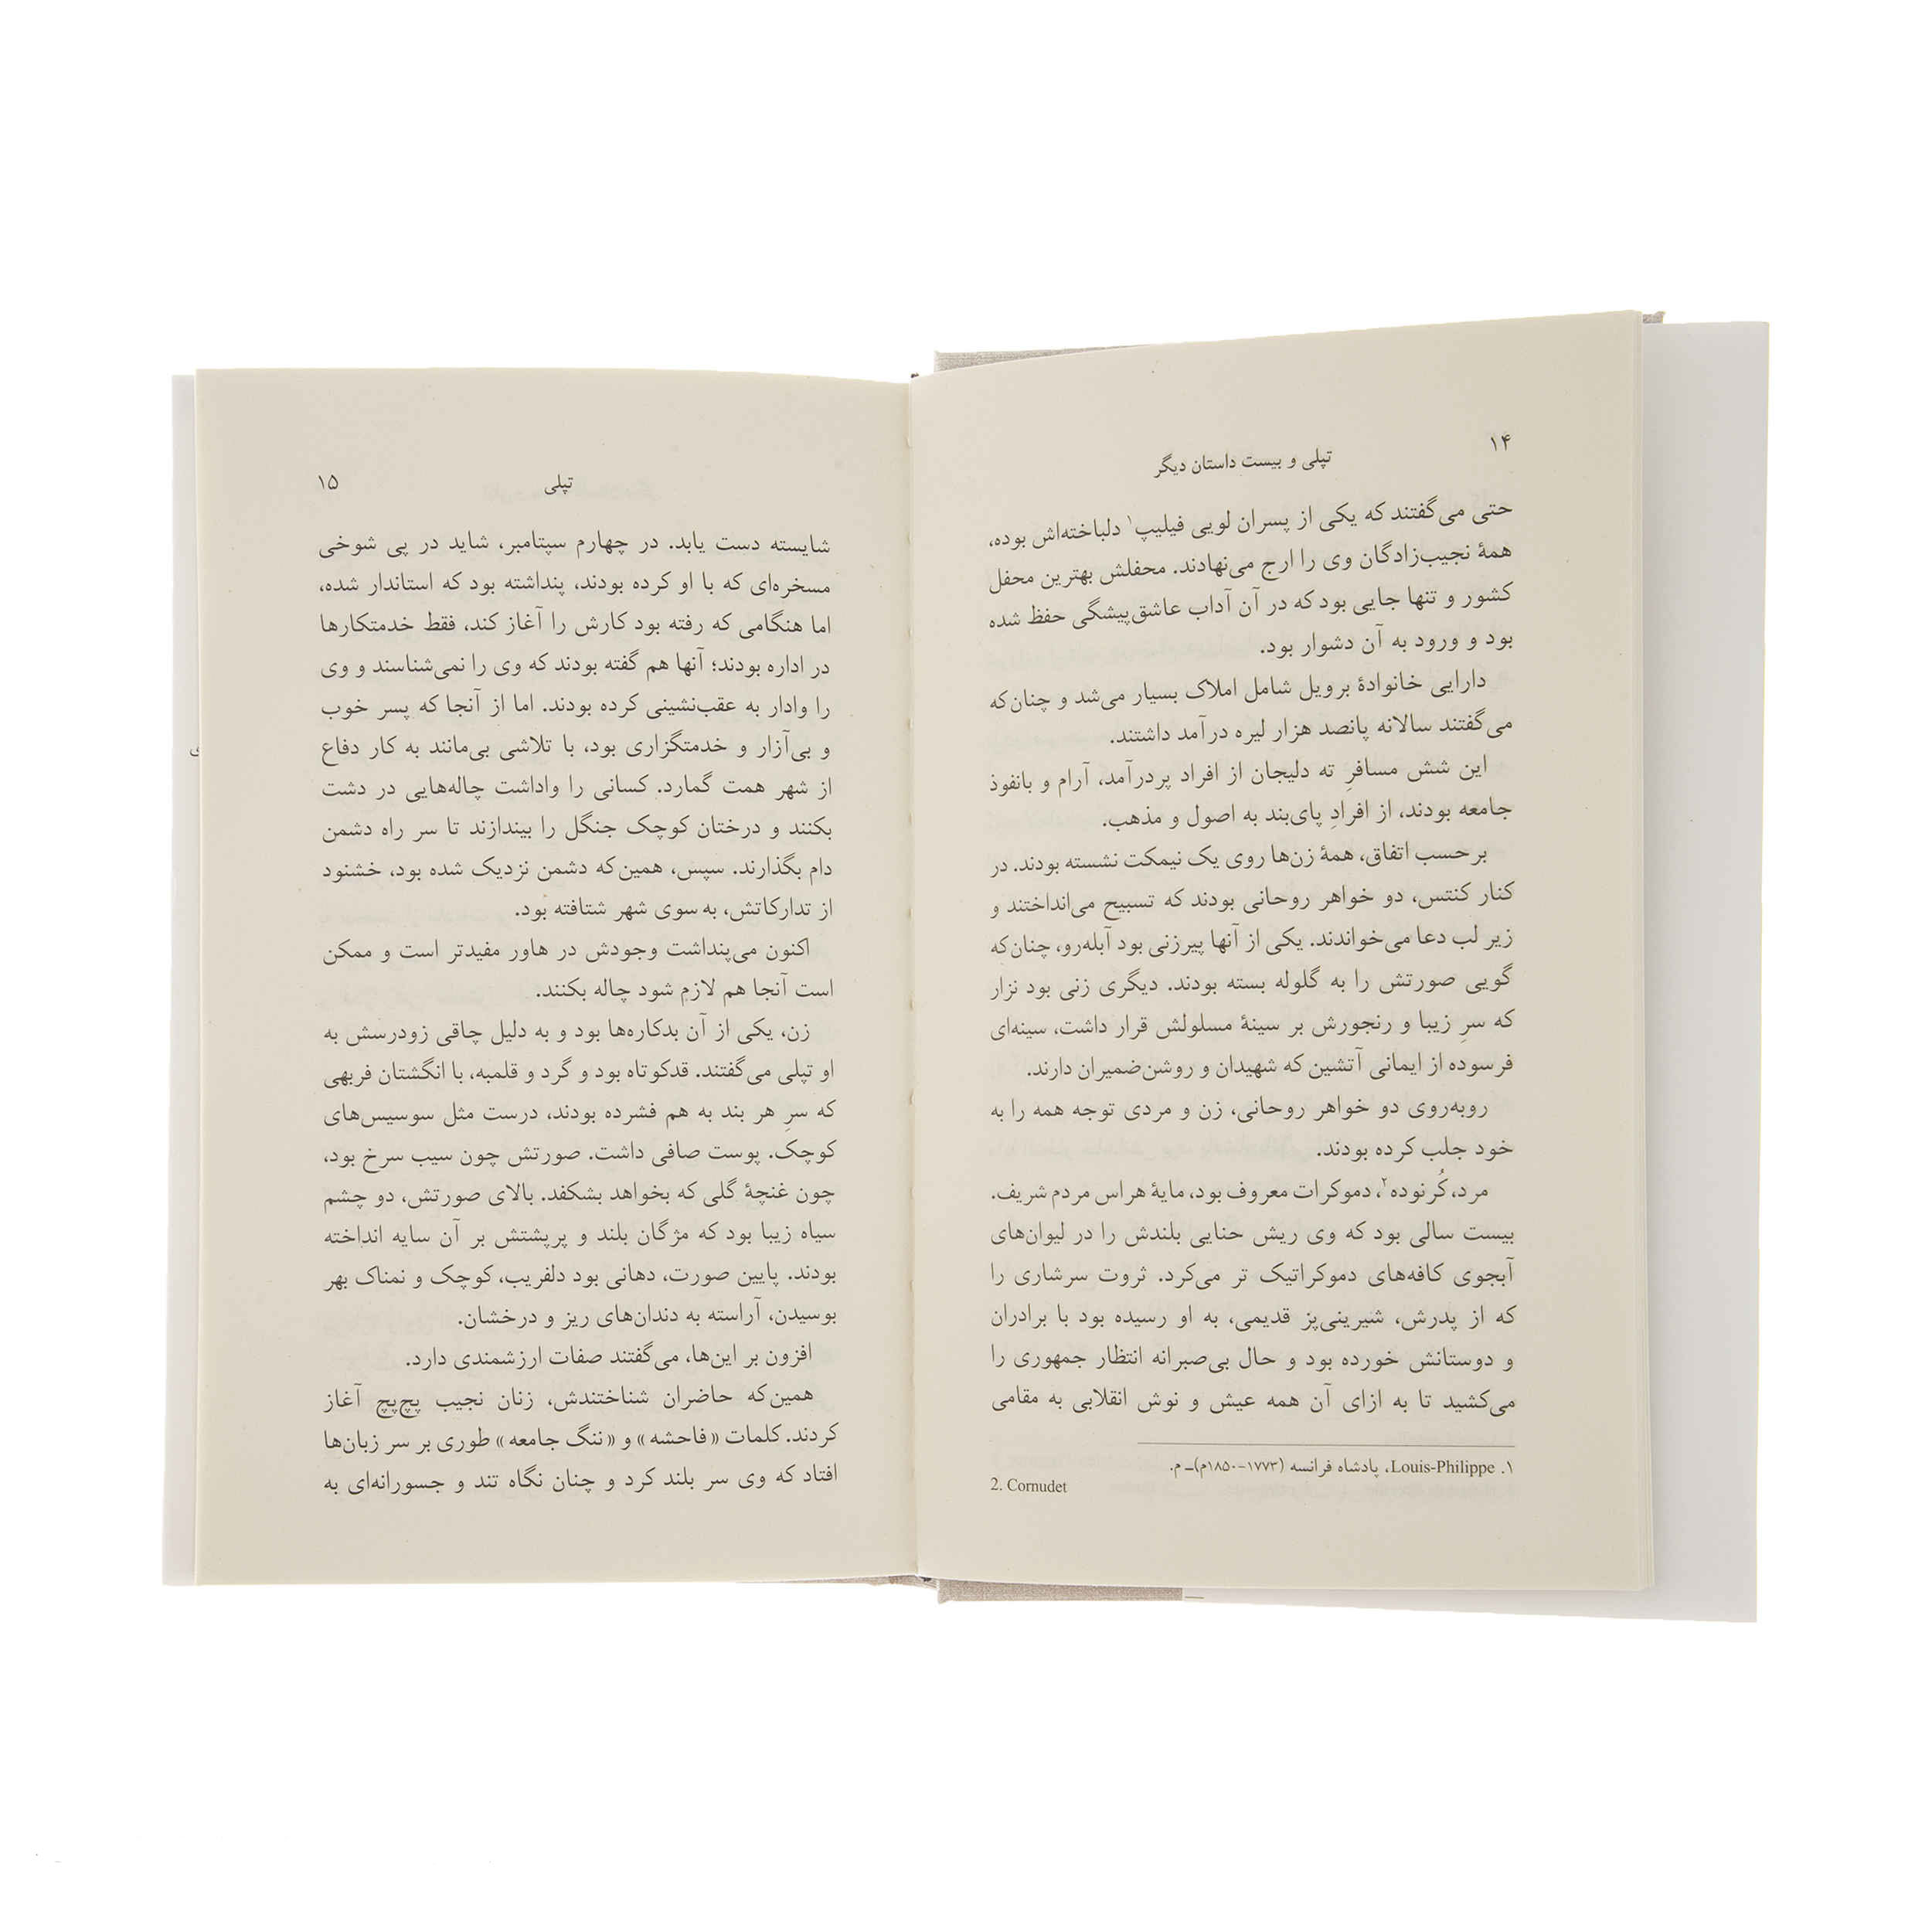 ۱۴
تپلی و بیست داستان دیگر
حتی می‌گفتند که یکی از پسران لویی فیلیپ۱ دلباخته‌اش بوده،
همهٔ نجیب‌زادگان وی را ارج می‌نهادند. محفلش بهترین محفل
کشور و تنها جایی بود که در آن آداب عاشق‌پیشگی حفظ شده
بود و ورود به آن دشوار بود.
دارایی خانوادهٔ برویل شامل املاک بسیار می‌شد و چنان‌که
می‌گفتند سالانه پانصد هزار لیره درآمد داشتند.
این شش مسافرِ ته دلیجان از افراد پردرآمد، آرام و بانفوذ
جامعه بودند، از افرادِ پای‌بند به اصول و مذهب.
برحسب اتفاق، همهٔ زن‌ها روی یک نیمکت نشسته بودند. در
کنار کنتس، دو خواهر روحانی بودند که تسبیح می‌انداختند و
زیر لب دعا می‌خواندند. یکی از آنها پیرزنی بود آبله‌رو، چنان‌که
گویی صورتش را به گلوله بسته بودند. دیگری زنی بود نزار
که سرِ زیبا و رنجورش بر سینهٔ مسلولش قرار داشت، سینه‌ای
فرسوده از ایمانی آتشین که شهیدان و روشن‌ضمیران دارند.
روبه‌روی دو خواهر روحانی، زن و مردی توجه همه را به
خود جلب کرده بودند.
مرد، کُرنوده۲، دموکرات معروف بود، مایهٔ هراس مردم شریف.
بیست سالی بود که وی ریش حنایی بلندش را در لیوان‌های
آبجوی کافه‌های دموکراتیک تر می‌کرد. ثروت سرشاری را
که از پدرش، شیرینی‌پز قدیمی، به او رسیده بود با برادران
و دوستانش خورده بود و حال بی‌صبرانه انتظار جمهوری را
می‌کشید تا به ازای آن همه عیش و نوش انقلابی به مقامی
۱. Louis-Philippe، پادشاه فرانسه (۱۷۷۳-۱۸۵۰م)ـ م.
2. Cornudet
تپلی
۱۵
شایسته دست یابد. در چهارم سپتامبر، شاید در پی شوخی
مسخره‌ای که با او کرده بودند، پنداشته بود که استاندار شده،
اما هنگامی که رفته بود کارش را آغاز کند، فقط خدمتکارها
در اداره بودند؛ آنها هم گفته بودند که وی را نمی‌شناسند و وی
را وادار به عقب‌نشینی کرده بودند. اما از آنجا که پسر خوب
و بی‌آزار و خدمتگزاری بود، با تلاشی بی‌مانند به کار دفاع
از شهر همت گمارد. کسانی را واداشت چاله‌هایی در دشت
بکنند و درختان کوچک جنگل را بیندازند تا سر راه دشمن
دام بگذارند. سپس، همین‌که دشمن نزدیک شده بود، خشنود
از تدارکاتش، به سوی شهر شتافته بود.
اکنون می‌پنداشت وجودش در هاور مفیدتر است و ممکن
است آنجا هم لازم شود چاله بکنند.
زن، یکی از آن بدکاره‌ها بود و به دلیل چاقی زودرسش به
او تپلی می‌گفتند. قدکوتاه بود و گرد و قلمبه، با انگشتان فربهی
که سرِ هر بند به هم فشرده بودند، درست مثل سوسیس‌های
کوچک. پوست صافی داشت. صورتش چون سیب سرخ بود،
چون غنچهٔ گلی که بخواهد بشکفد. بالای صورتش، دو چشم
سیاه زیبا بود که مژگان بلند و پرپشتش بر آن سایه انداخته
بودند. پایین صورت، دهانی بود دلفریب، کوچک و نمناک بهر
بوسیدن، آراسته به دندان‌های ریز و درخشان.
افزون بر این‌ها، می‌گفتند صفات ارزشمندی دارد.
همین‌که حاضران شناختندش، زنان نجیب پچ‌پچ آغاز
کردند. کلمات «فاحشه» و «ننگ جامعه» طوری بر سر زبان‌ها
افتاد که وی سر بلند کرد و چنان نگاه تند و جسورانه‌ای به